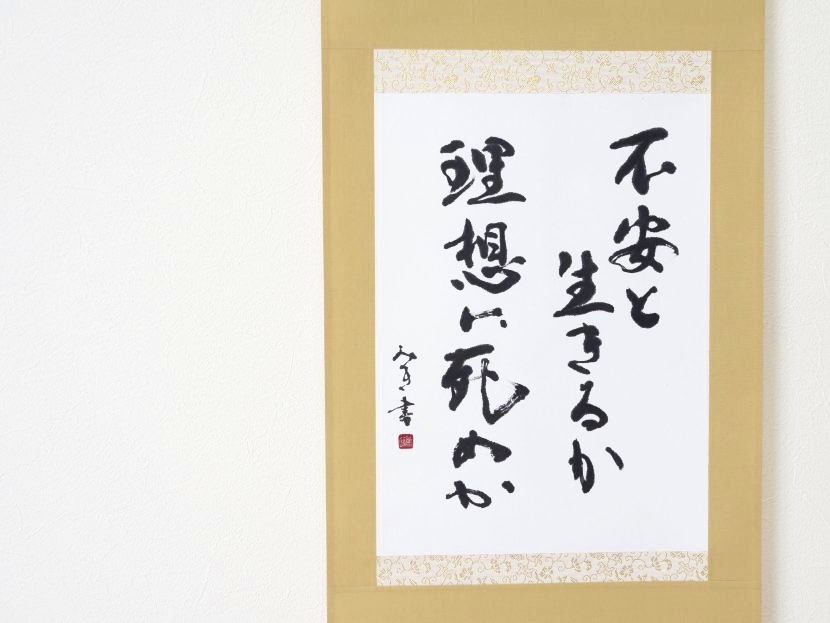 不安と
生きるか
理想に死ぬか
みき書